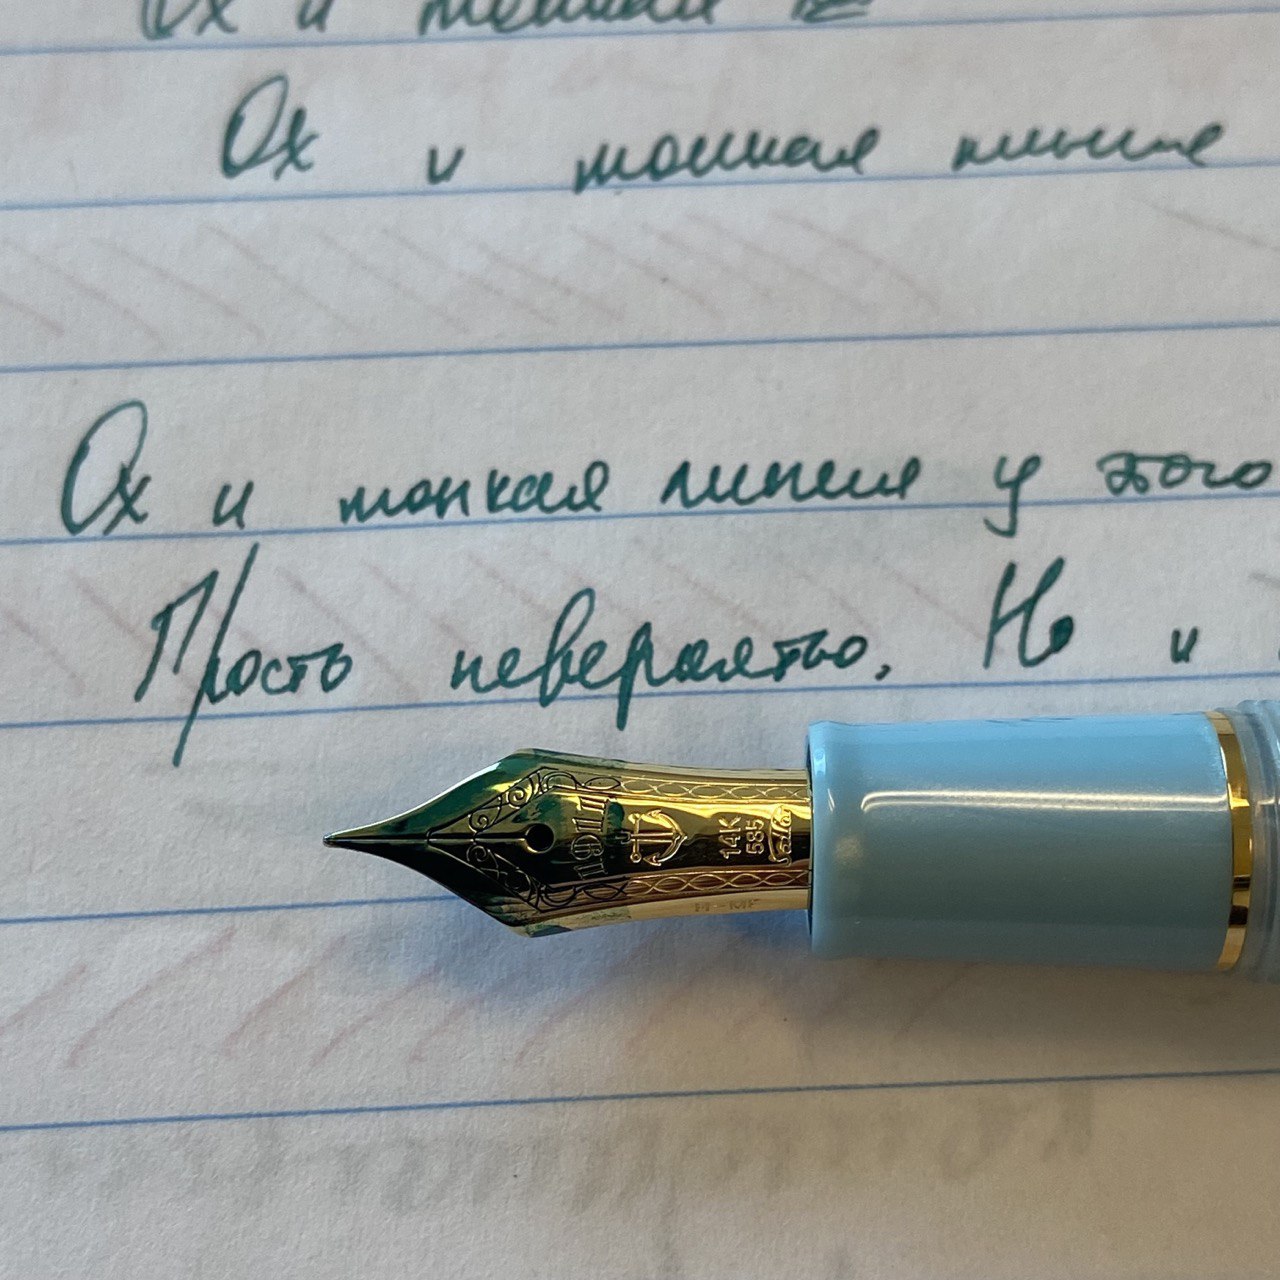 Ох и тонкая
Ох и тонкая линия
Ох и тонкая линия у этого
Прость невероятно. Но и
1911
14K
585
Sailor
H-MF